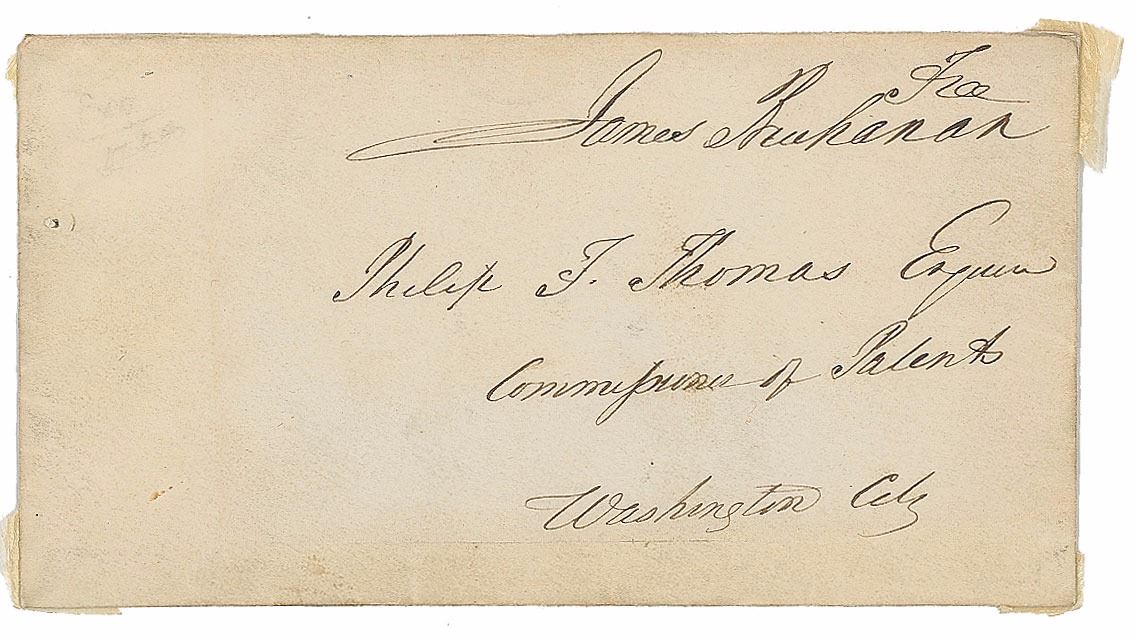 Free
James Buchanan
Philip F. Thomas Esquire
Commissioner of Patents
Washington City